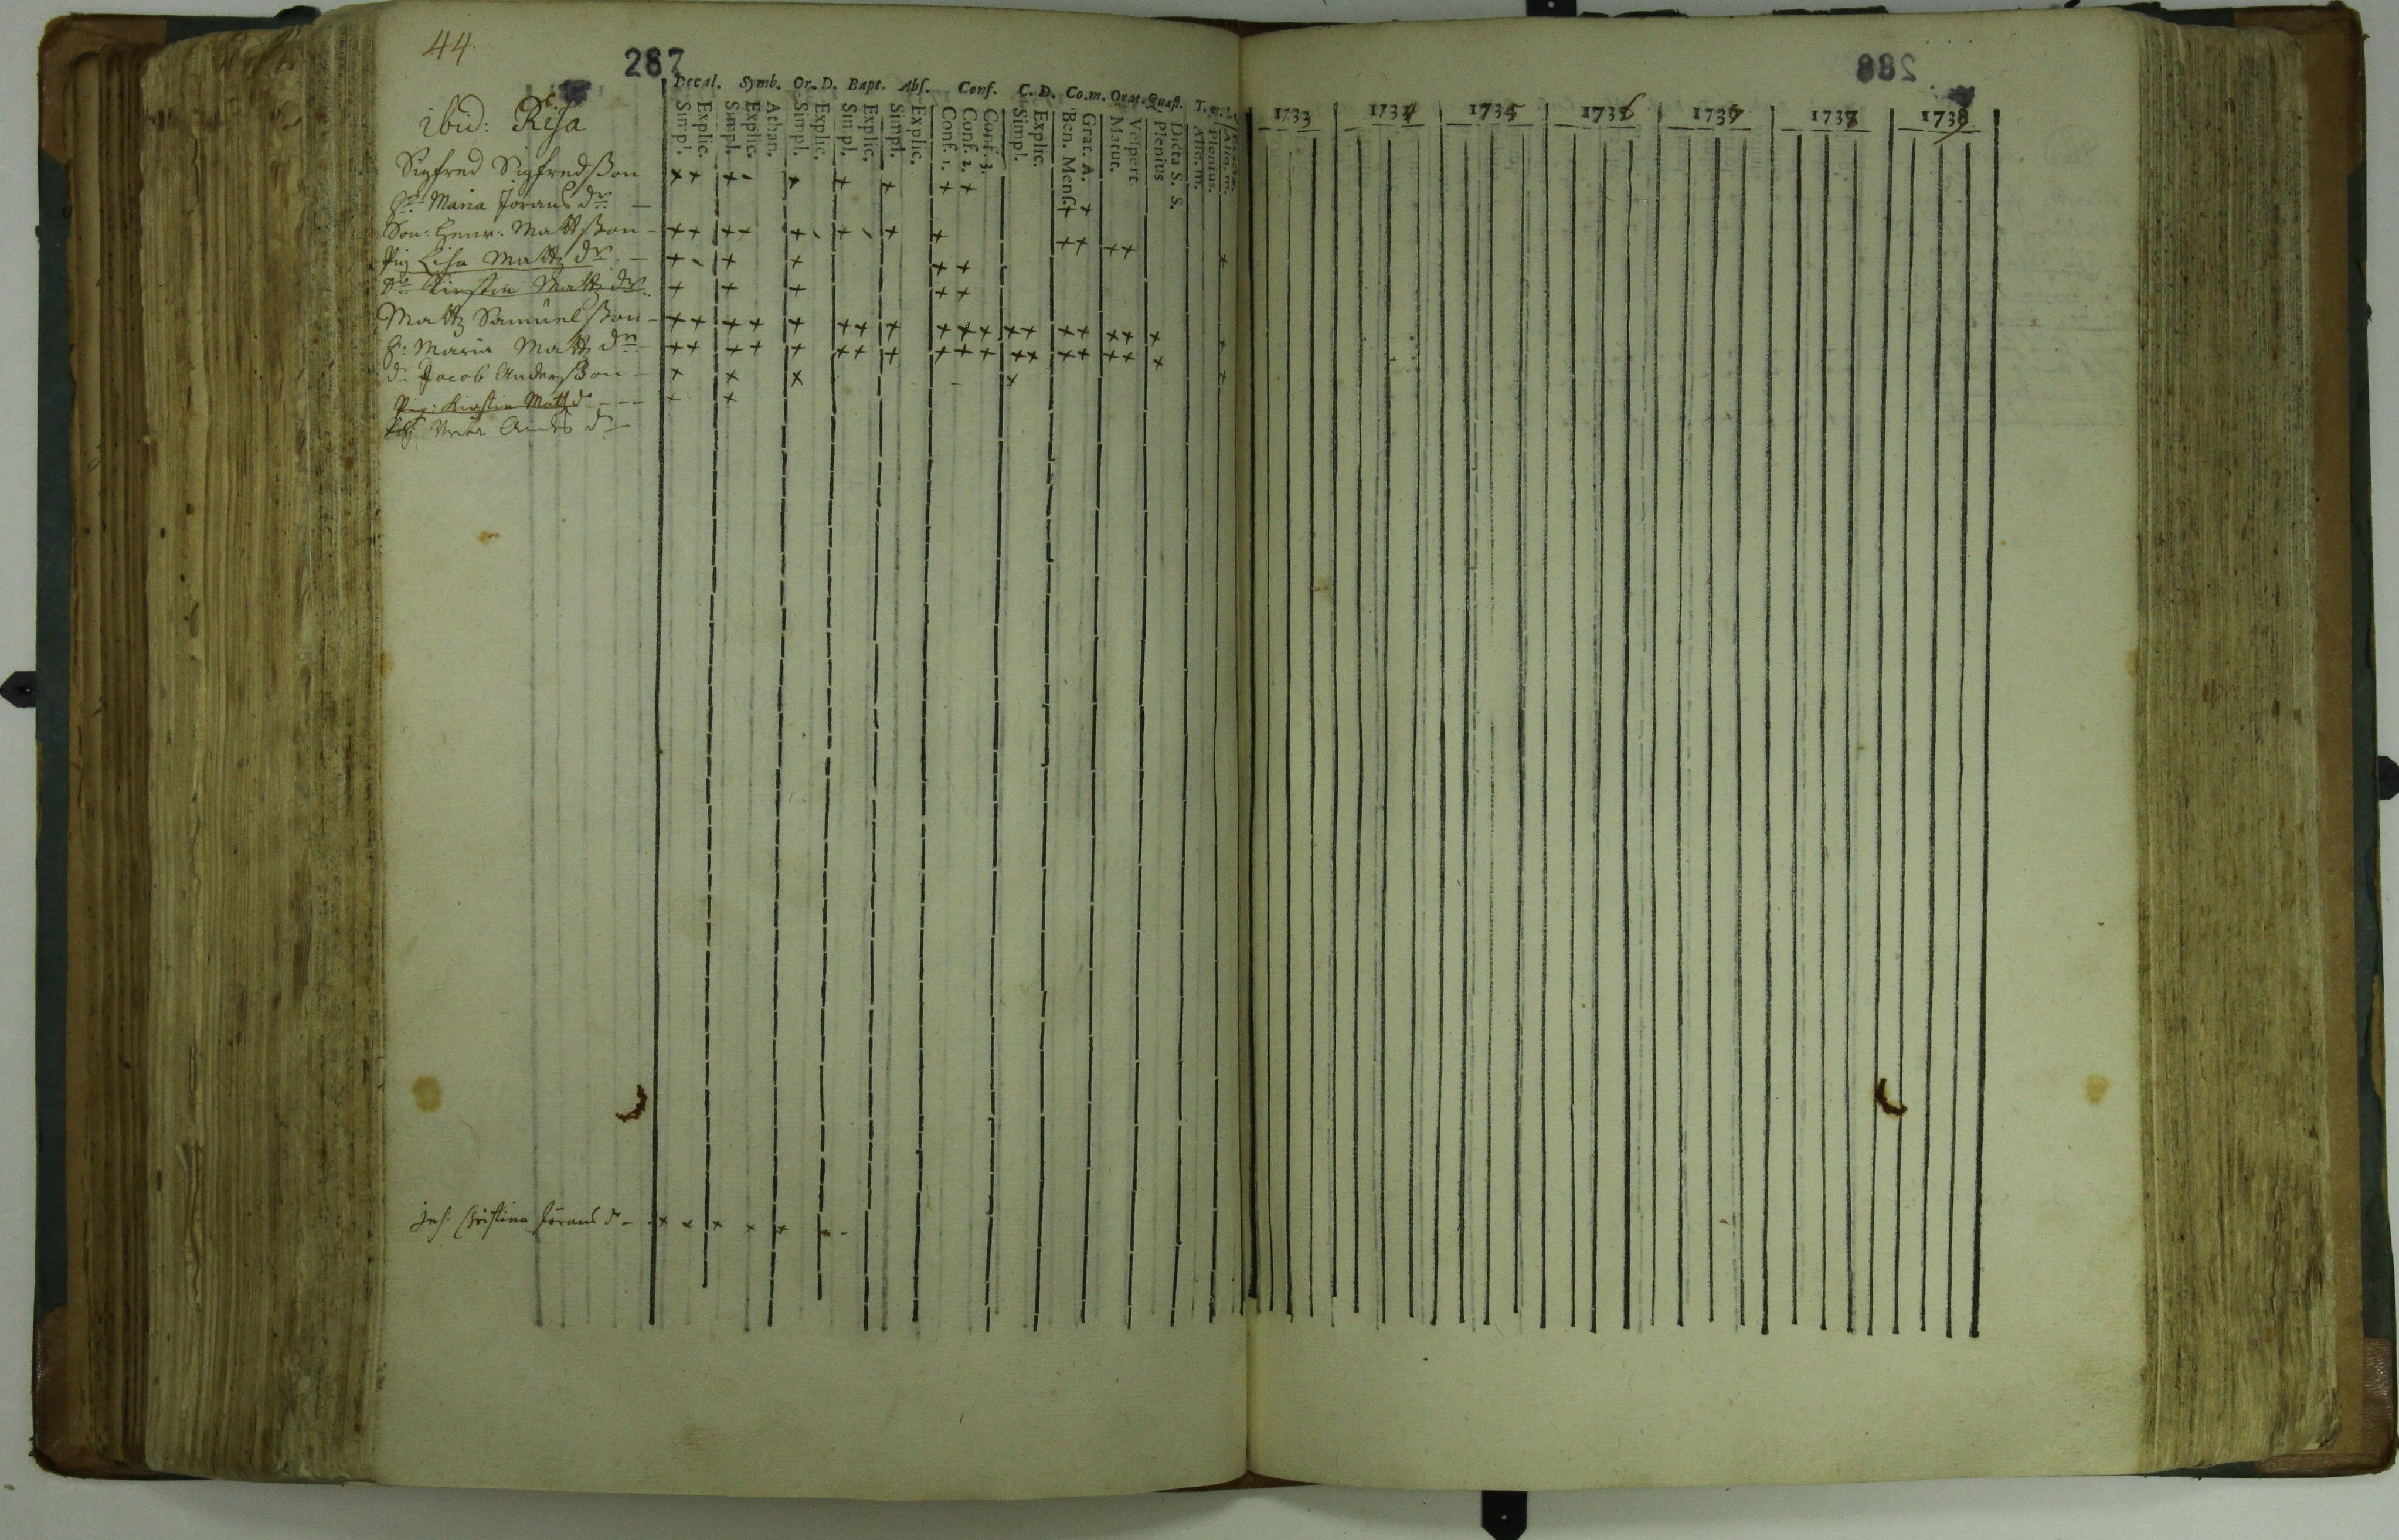 44.
287
Decal. Symb. Or. D. Bapt. Abs. Conf. C. D. Co.m. Orat. Quæst. T.
Simpl. Explic. Simpl. Explic. Athan. Simpl. Explic. Simpl. Explic. Simpl. Explic. Conf. 1. Conf. 2. Conf. 3. Simpl. Explic. Ben. Mens. Grat. A. Matut. Vespert. Plenius Dicta S. S. Aliq. m. Plenius. Aliq. m.
ibid: Risa
Sigfred Sigfredsson
H: Maria Jörans dr
Son: Henr: Mattsson
Pig Lisa Matts dr
do Kirstin Matts dr
Matts Samuelsson
H: Maria Matts dr
d: Jacob Andersson
Pig: Kirstin Matts d
Anders d
Inh: Christina Jörans d
288
1733 1734 1735 1736 1737 1738 1739